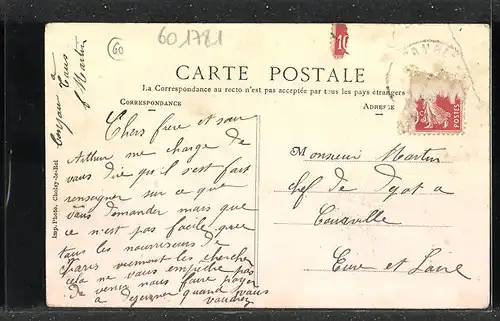 60 1781
60
10
CARTE POSTALE
La Correspondance au recto n'est pas acceptée par tous les pays étrangers
CORRESPONDANCE
ADRESSE
POSTES
Chers frere et sœur
Arthur me charge de
vous dire qu'il s'est fait
renseigner sur ce que
vous demander mais que
ce n'est pas facile que
tous les nourrisseurs de
Paris viennent les chercher
cela ne vous empeche pas
de venez nous faire payer
a dejeuner quand vous
voudrez
bonjour a tous
L Martin
Imp.-Photo, Choisy-le-Roi
Monsieur Martin
chef de Depot a
Courville
Eure et Loire